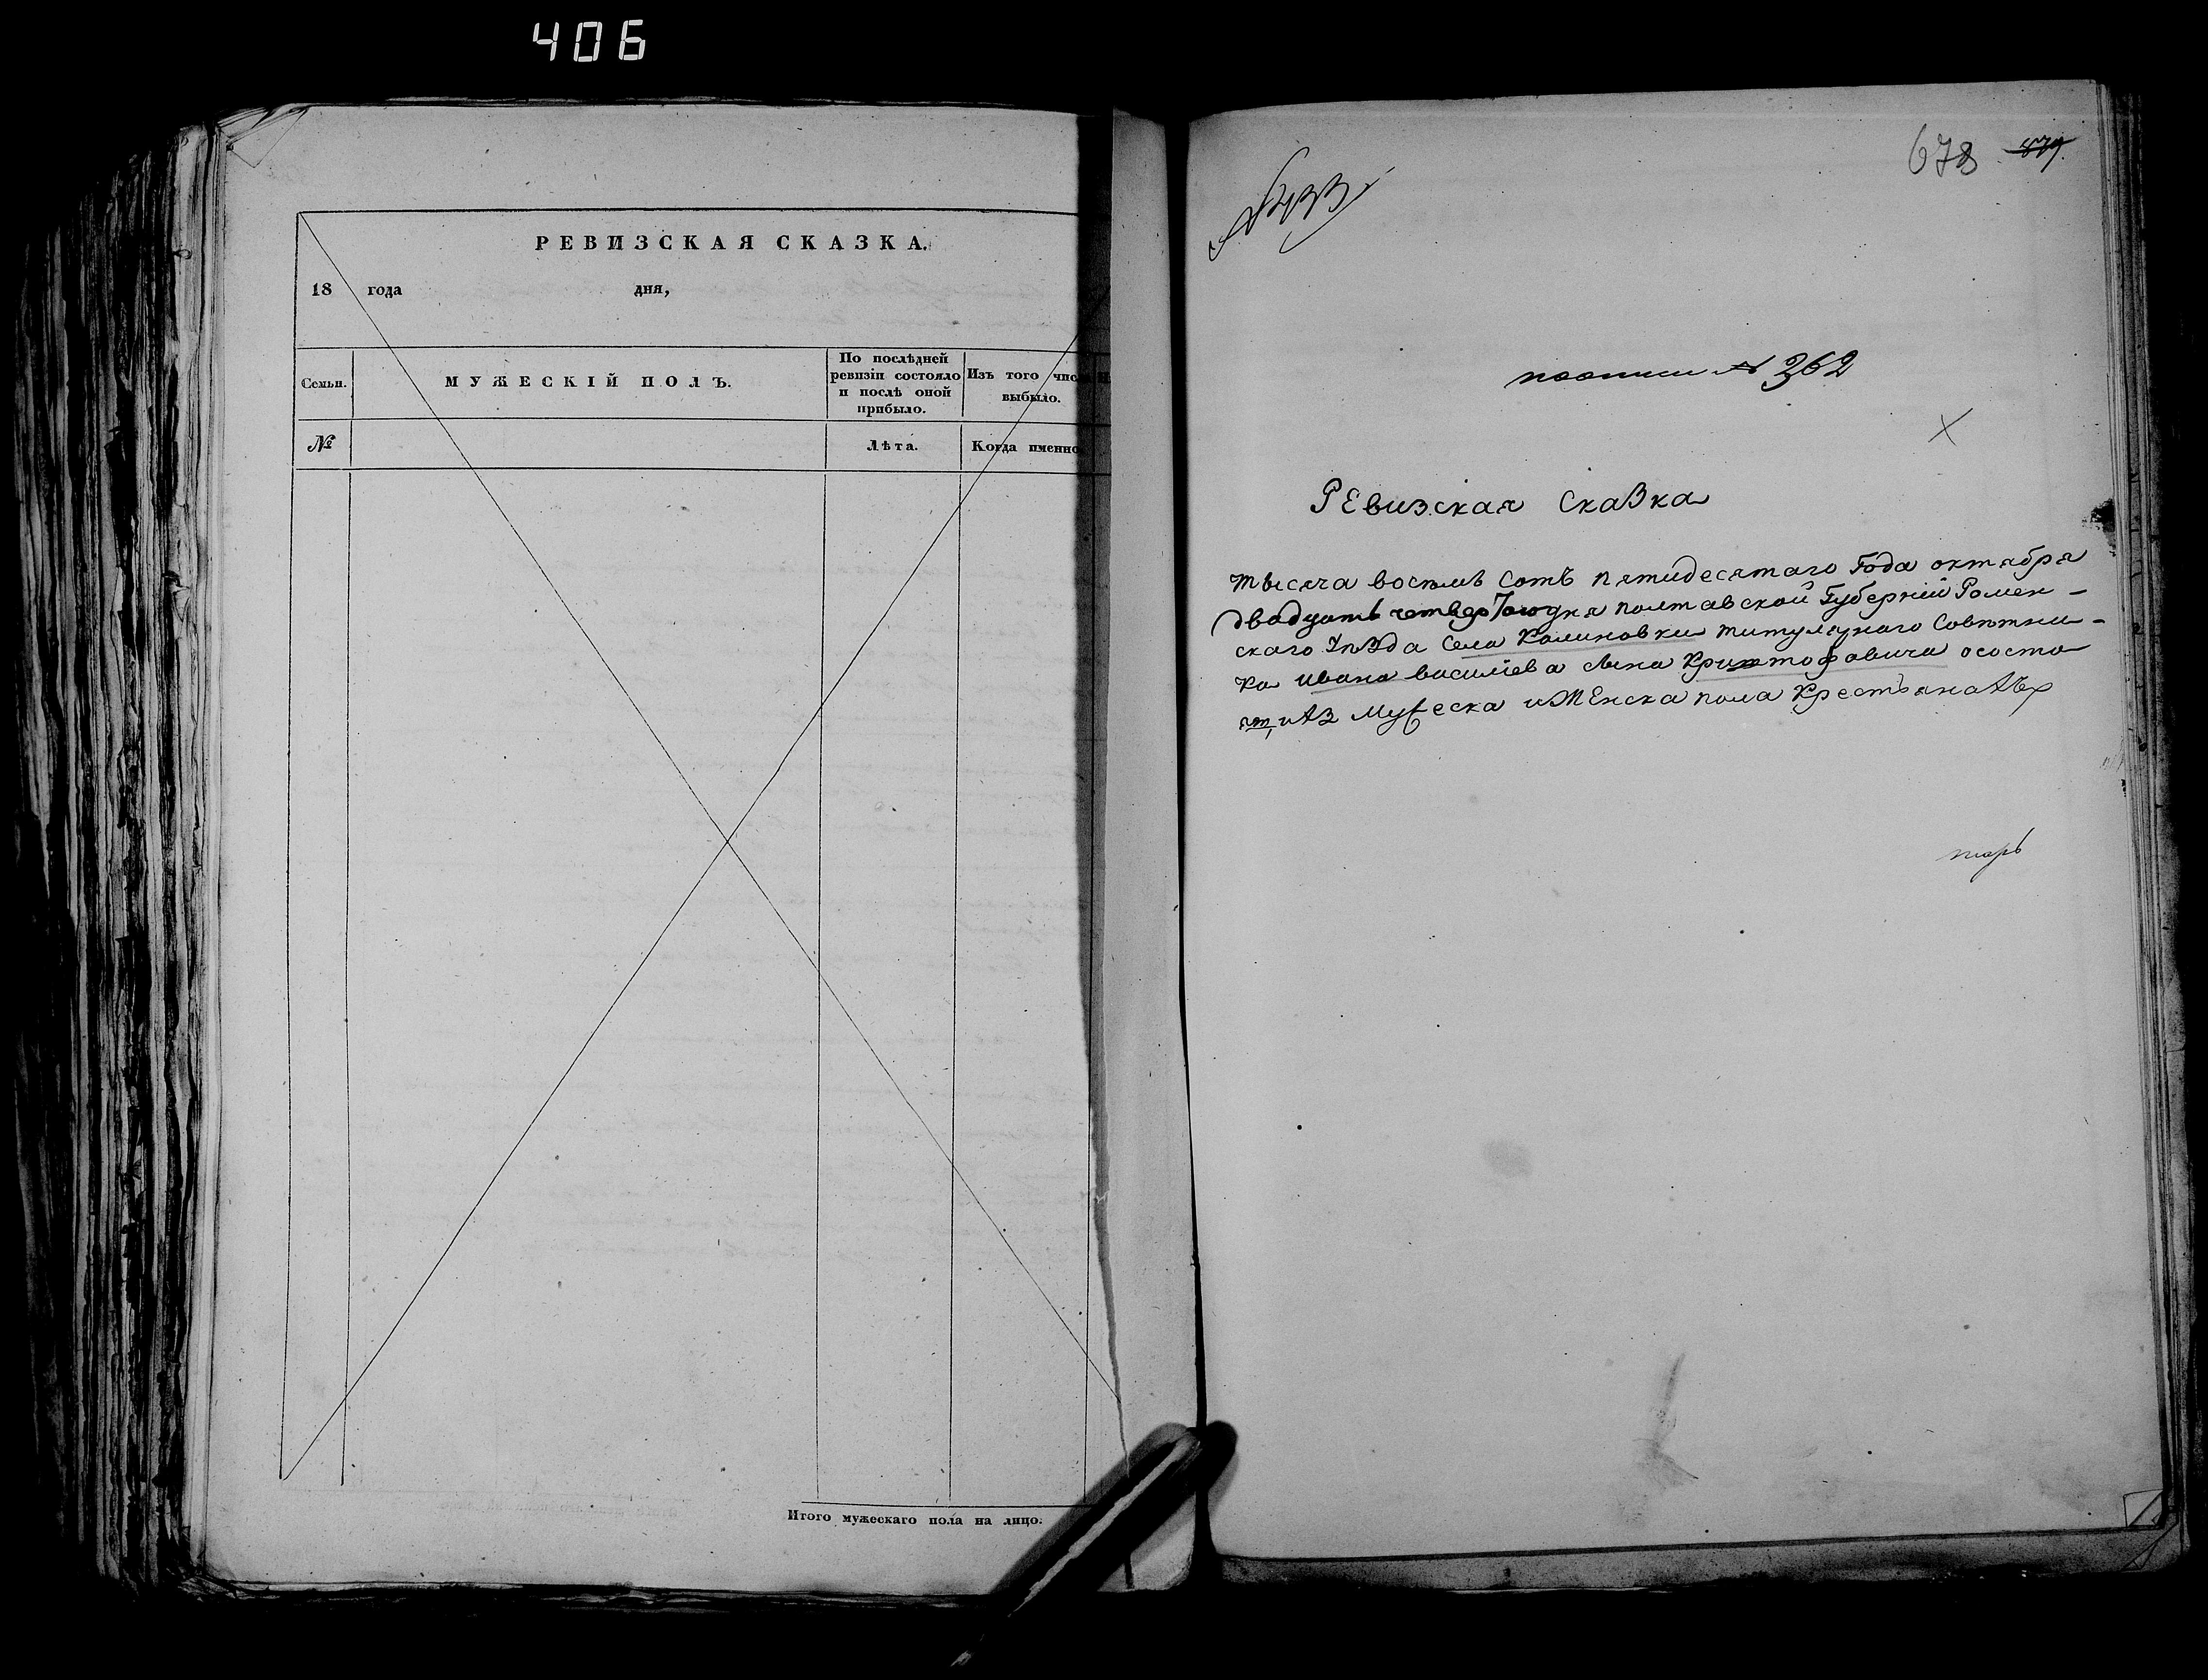 406
РЕВИЗСКАЯ СКАЗКА.
18 года дня,
Семьи.
МУЖЕСКІЙ ПОЛЪ.
По послѣдней ревизіи состояло и послѣ оной прибыло.
Изъ того числа выбыло.
№
Лѣта.
Когда именно
Итого мужескаго пола на лицо.
678 879.
поописи № 362
РЕвизская СкаЗка
тысяча восѣмь сотъ пятидесятаго Года октября
двадцать четвертого дня полтавской Губерніи Ромен-
скаго Уѣзда Села Калиновки титулярнаго Совѣтни-
ка Ивана василіева сына Криштофовича осостоя
щихъ Мужеска иЖЕнска пола Крестьянахъ